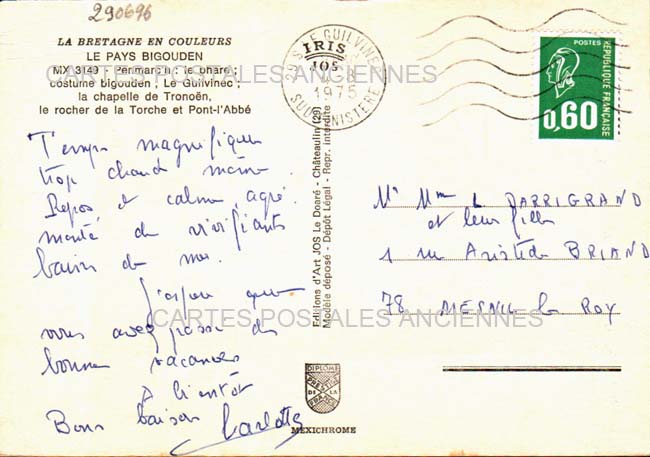 290696
LA BRETAGNE EN COULEURS
LE PAYS BIGOUDEN
MX 3149 - Penmarch : le phare ;
costume bigouden ; Le Guilvinec ;
la chapelle de Tronoën,
le rocher de la Torche et Pont-l'Abbé
Temps magnifique
trop chaud même
Repos et calme agré
menté de vivifiants
bains de mer.
J'espère que
vous avez passé de
bonnes vacances
A bientôt
Bons baisers Carlotta
Editions d'Art JOS Le Doaré - Châteaulin (29)
Modèle déposé - Dépôt Légal - Repr. interdite
IRIS
JOS
29 LE GUILVINEC
1975
SUD FINISTERE
POSTES
REPUBLIQUE FRANÇAISE
0,60
Mr Mme L DARRIGRAND
et leur fille
1 rue Aristide BRIAND
78 MESNIL le ROY
DIPLOME
PRESTIGE
DE LA
FRANCE
MEXICHROME
CARTES POSTALES ANCIENNES
CARTES POSTALES ANCIENNES